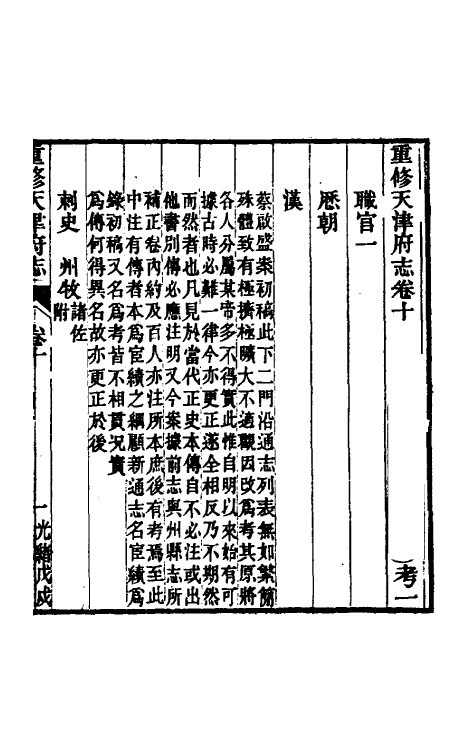 重修天津府志卷十
考一
職官一
歷朝
漢
蔡啟盛案初稿此下二門沿通志列表無如繁簡
殊體致有極擠極曠大不適觀因改爲考其原將
各人分屬某帝多不得實此惟自明以來始有可
據古時必難一律今亦更正遂全相反乃不期然
而然者也凡見於當代正史本傳自不必注或出
他書別傳必應注明又今案據前志與州縣志所
補正卷內約及百人亦注所本庶後有考焉至此
中注有傳者本爲宦績之綱顧新通志名宦績爲
錄初稿又名爲考皆不相貫況實
爲傳何得異名故亦更正於後
刺史 州牧 諸佐附
重修天津府志
卷十
一
光緒戊戌